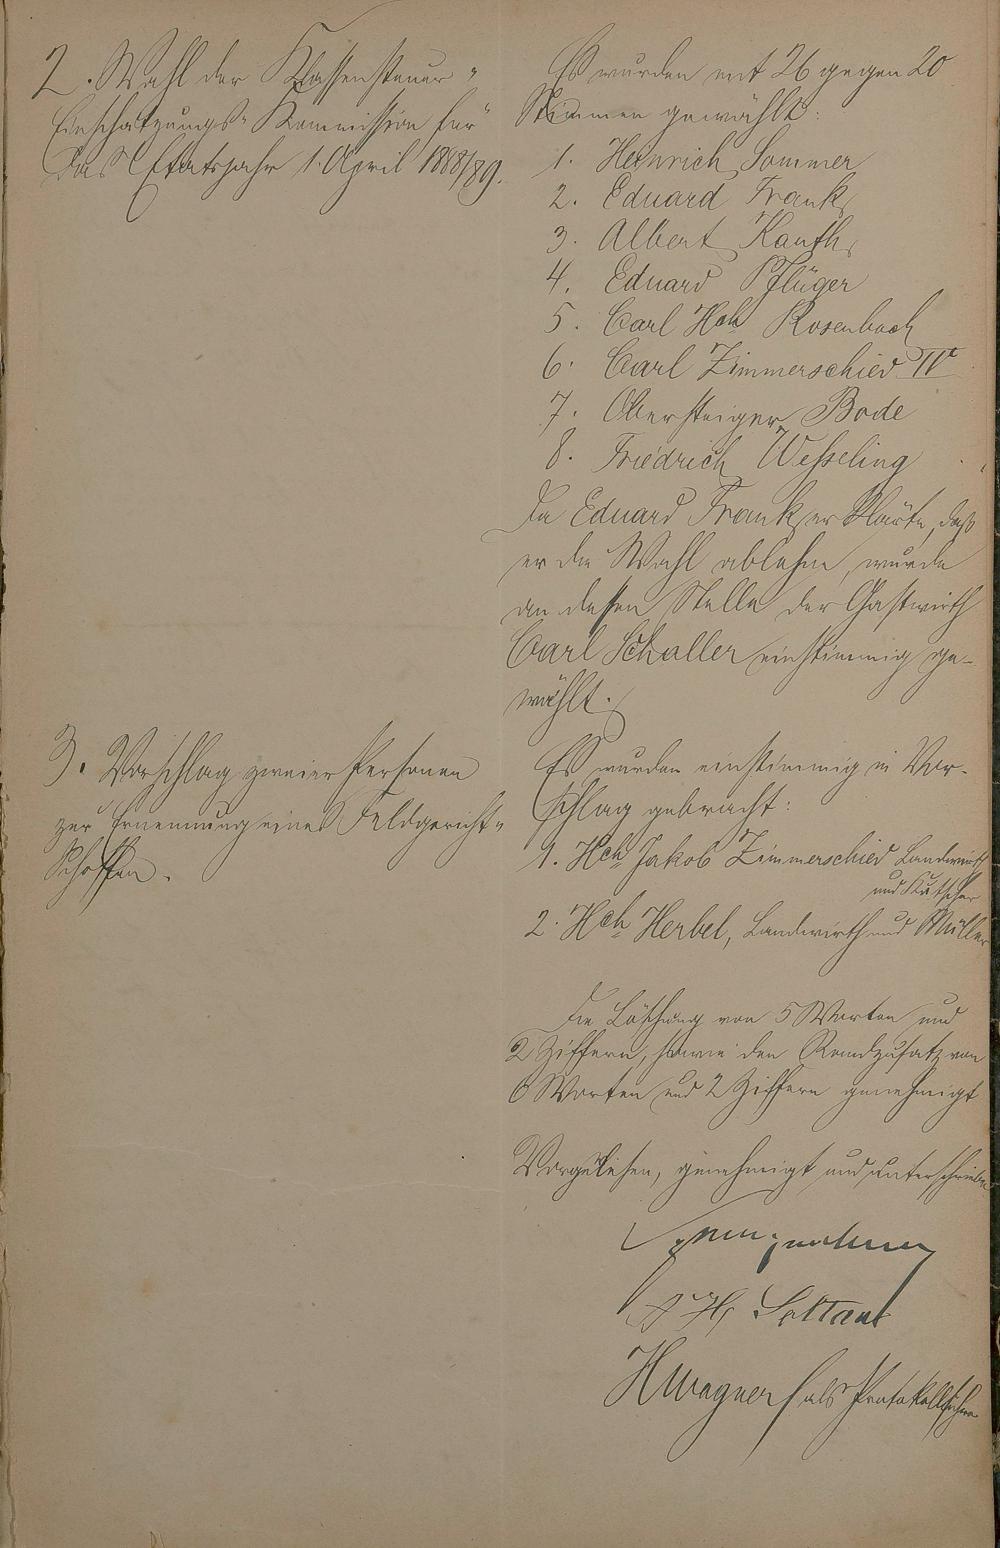 2. Wahl der Klassensteuer-
Einschätzungs-Kommission für
das Etatsjahr 1. April 1888/89.
Es wurden mit 26 gegen 20
Stimmen gewählt:
1. Heinrich Sommer
2. Eduard Frank
3. Albert Kauth
4. Eduard Pflüger
5. Carl Hch Rosenbach
6. Carl Zimmerschied IVr
7. Obersteiger Bode
8. Friedrich Wesseling
Da Eduard Frank erklärte, daß
er die Wahl ablehne, wurde
an dessen Stelle der Gastwirth
Carl Schaller einstimmig ge-
wählt.
3. Vorschlag zweier Personen
zur Ernennung eines Feldgericht-
Schöffen.
Es wurden einstimmig in Vor-
schlag gebracht:
1. Hch Jakob Zimmerschied Landwirth
und Kutscher
2. Hch Herbel, Landwirth und Müller
Die Löschung von 5 Worten und
2 Ziffern, sowie den Randzusatz von
6 Worten und 2 Ziffern genehmigt
Vorgelesen, genehmigt und unterschrieben
HWagner als Protokollführer